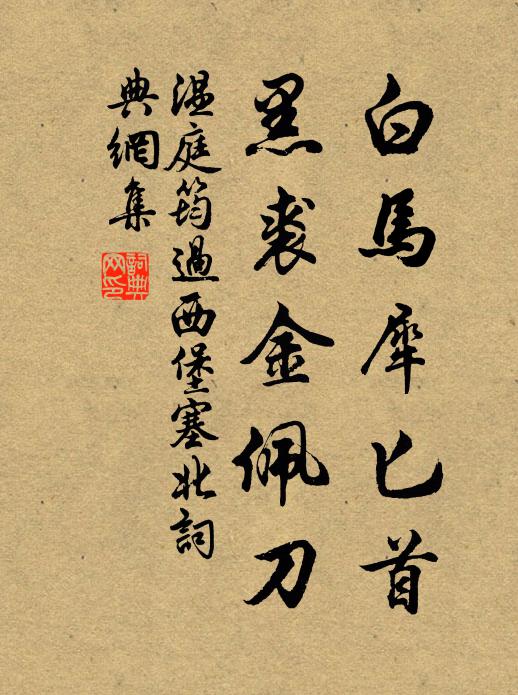 白馬犀匕首
黑裘金佩刀
溫庭筠過西堡塞北詞
典網集
詞典
网印